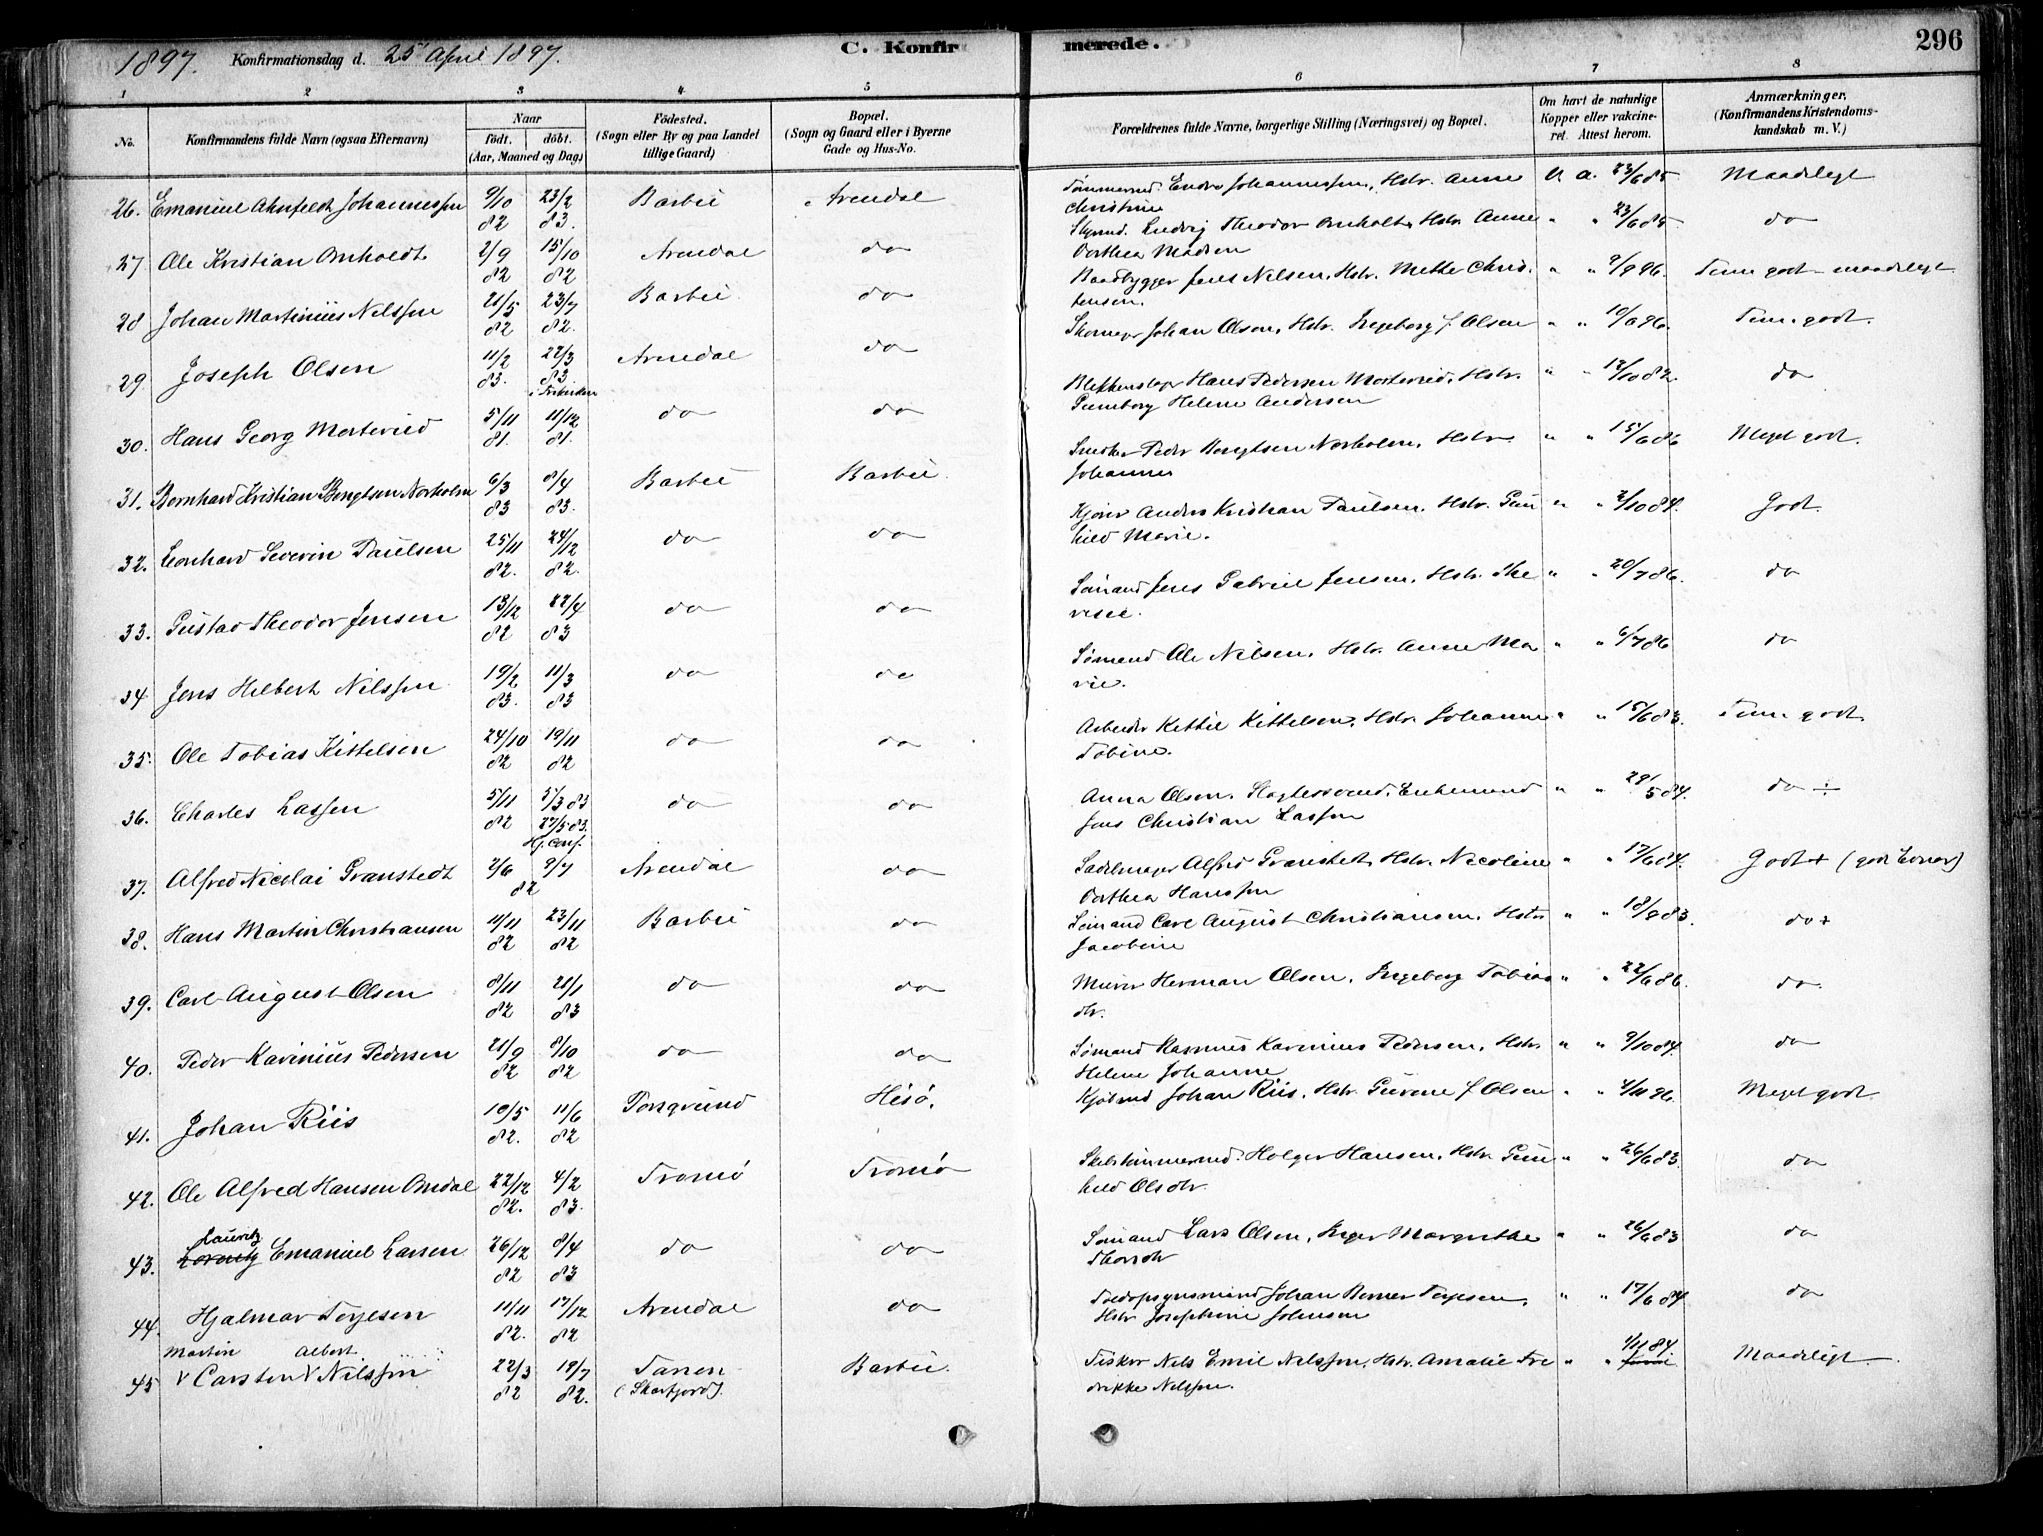 1897. Konfirmationsdag d. 25 April 1897. C. Konfirmerede. 296
1 2 3 4 5 6 7 8
No. Konfirmandens fulde Navn (ogsaa Efternavn) Naar født. døbt. (Aar, Maaned og Dag) Fødested. (Sogn eller By og paa Landet tillige Gaard) Bopæl. (Sogn og Gaard eller i Byerne Gade og Hus-No. Forældrenes fulde Navne, borgerlige Stilling (Næringsvei) og Bopæl. Om havt de naturlige Kopper eller vakcineret. Attest herom. Anmærkninger. (Konfirmandens Kristendomskundskab m. V.)
26. Emanuel Ahnfeldt Johannessen 9/10 82 23/2 83. Barbu Arendal Tømmermd. Endre Johannessen, Hstr. Anne Christine v. a. 23/6 85 Maadeligt
27 Ole Kristian Onholdt 2/9 82 15/10 82 Arendal do Styrmd. Ludvig Theodor Onholdt, Hstr. Anne Dorthea Madsen " " 23/6 85 do
28 Johan Martinius Nilssen 21/5 82 23/7 82. Barbu do Baadbygger Jens Nilsen, Hstr. Mette Christensen. " " 9/9 96. Tem. godt - maadeligt
29 Joseph Olsen 11/2 83. 22/3 83 i Frikirken Arendal do Skomager Johan Olsen, Hstr. Ingeborg f. Olsen " " 10/6 96. Tem. godt.
30. Hans Georg Mortveid 5/11 81. 11/12 81. do do Blikkenslager Hans Pedersen Mortveid, Hstr. Gunneborg Helene Andersen " " 12/10 82. do
31. Bernhard Kristian Bengtsen Norholm 6/3 83 8/4 83. Barbu Barbu Peder Bengtsen Norholm, Hstr. Johanne " " 15/6 86 Meget godt.
32. Leonhard Severin Paulsen 25/11 82. 24/12 82. do do Anders Kristian Paulsen. Hstr. Gunhild Marie. " " 2/10 84. Godt.
33. Gustav Theodor Jensen 13/12 82 22/4 83 do do Sømand Jens Gabriel Jensen, Hstr. Theresie. " " 20/7 86. do
34 Jens Helbert Nilssen 19/2 83. 11/3 83 do do Sømand Ole Nilsen, Hstr. Anne Marie. " " 6/7 86 do
35. Ole Tobias Kittelsen 24/10 82 19/11 82 do do Arbeider Kittil Kittelsen, Hstr. Johanne Tobine. " " 15/6 83. Tem. godt
36. Charles Lassen 5/11 82 5/3 83 27/5 83. Hj. conf. do do Anna Olsen, Enkemand Jens Christian Lassen " " 29/5 84. do ÷
37. Alfred Nicolai Granstedt 2/6 9/7 82 Arendal do Sadelmager Alfred Granstedt, Hstr. Nicoline Dorthea Hanssen " " 17/6 84. Godt + (god Evner)
38. Hans Martin Christiansen 11/11 82 23/11 82 Barbu do Sømand Carl August Christiansen, Hstr. Jacobine " " 18/9 83. do +
39. Carl August Olsen 8/11 82 21/1 83 do do Murer Herman Olsen, Ingeborg Tobiasdtr. " " 22/6 86. do.
40. Peder Karinius Pedersen 21/9 82 8/10 82 do do Sømand Rasmus Karinius Pedersen, Hstr. Helene Johanne " " 9/10 84. do
41. Johan Riis 19/5 82. 11/6 82 Porsgrund Hisø. Kjøbmd Johan Riis, Hstr. Gurene f. Olsen " " 4/11 96. Meget godt
42. Ole Alfred Hansen Omdal 22/12 82. 4/2 83. Tromø Tromø Skibstømmermd. Holger Hansen, Hstr. Gunhild Olsdtr. " " 26/6 83. do
43. Lauritz Emanuel Larsen 26/12 82 8/4 83 do do Sømand Lars Olsen, Inger Margrethe Thorsdtr " " 26/6 83 do
44. Hjalmar Terjesen 11/11 82. 17/12 82 Arendal do Toldopsynsmand Johan Berner Terjesen, Hstr Josephine Johnsen " " 17/6 84 do
45 Carsten Martin Albert Nilssen 22/3 82 19/7 82. Tanen (Skarfjord). Barbu. Fisker Nils Emil Nilssen, Hstr. Amalie Fredrikke Nilssen. " " 1/11 84 Maadeligt.